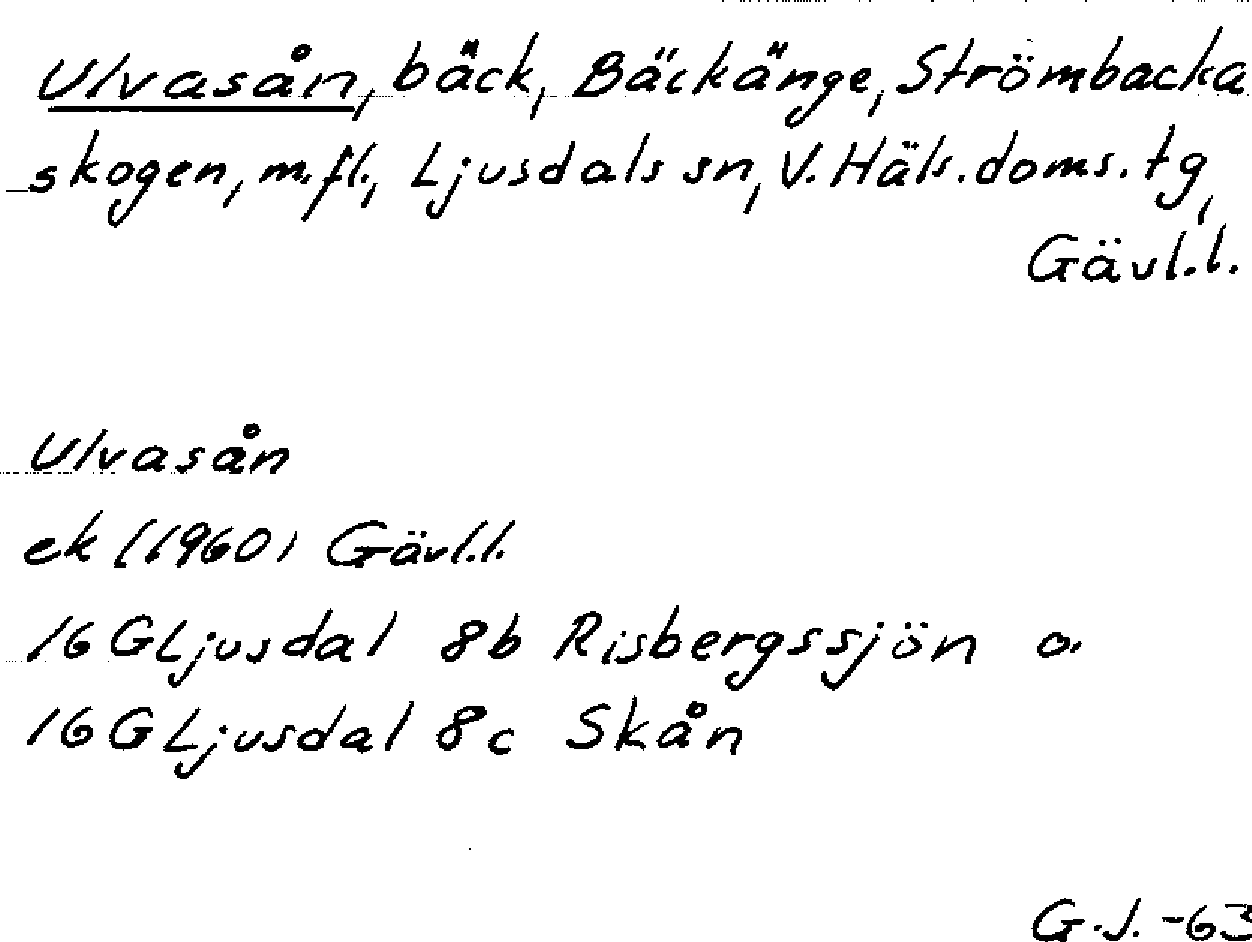 Ulvasån, bäck, Bäckänge, Strömbacka
skogen, m.fl., Ljusdals sn, V. Häls. doms. tg,
Gävl.l.
Ulvasån
ek (1960) Gävl.l.
16 G Ljusdal 8b Risbergssjön o.
16 G Ljusdal 8c Skån
G.J. -63